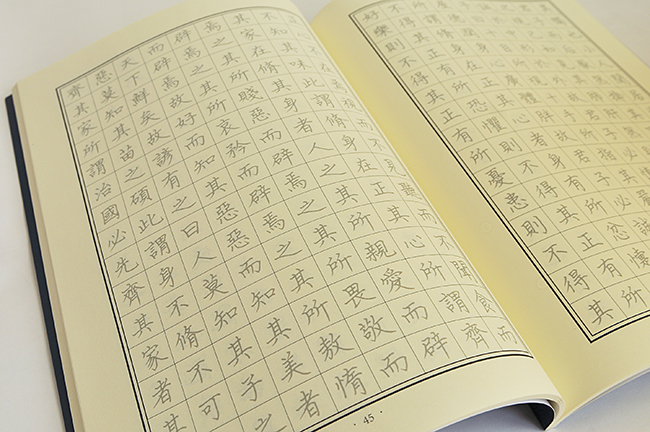 所謂脩身在正其心者身有所忿懥則
不得其正有所恐懼則不得其正有所
好樂則不得其正有所憂患則不得其
不聞食而
不知其味此謂脩身在正其心所謂齊
其家在脩其身者人之其所親愛而辟
焉之其所賤惡而辟焉之其所畏敬而
辟焉之其所哀矜而辟焉之其所敖惰
而辟焉故好而知其惡惡而知其美者
天下鮮矣故諺有之曰人莫知其子之
惡莫知其苗之碩此謂身不脩不可
齊其家所謂治國必先齊其家者其
· 45 ·